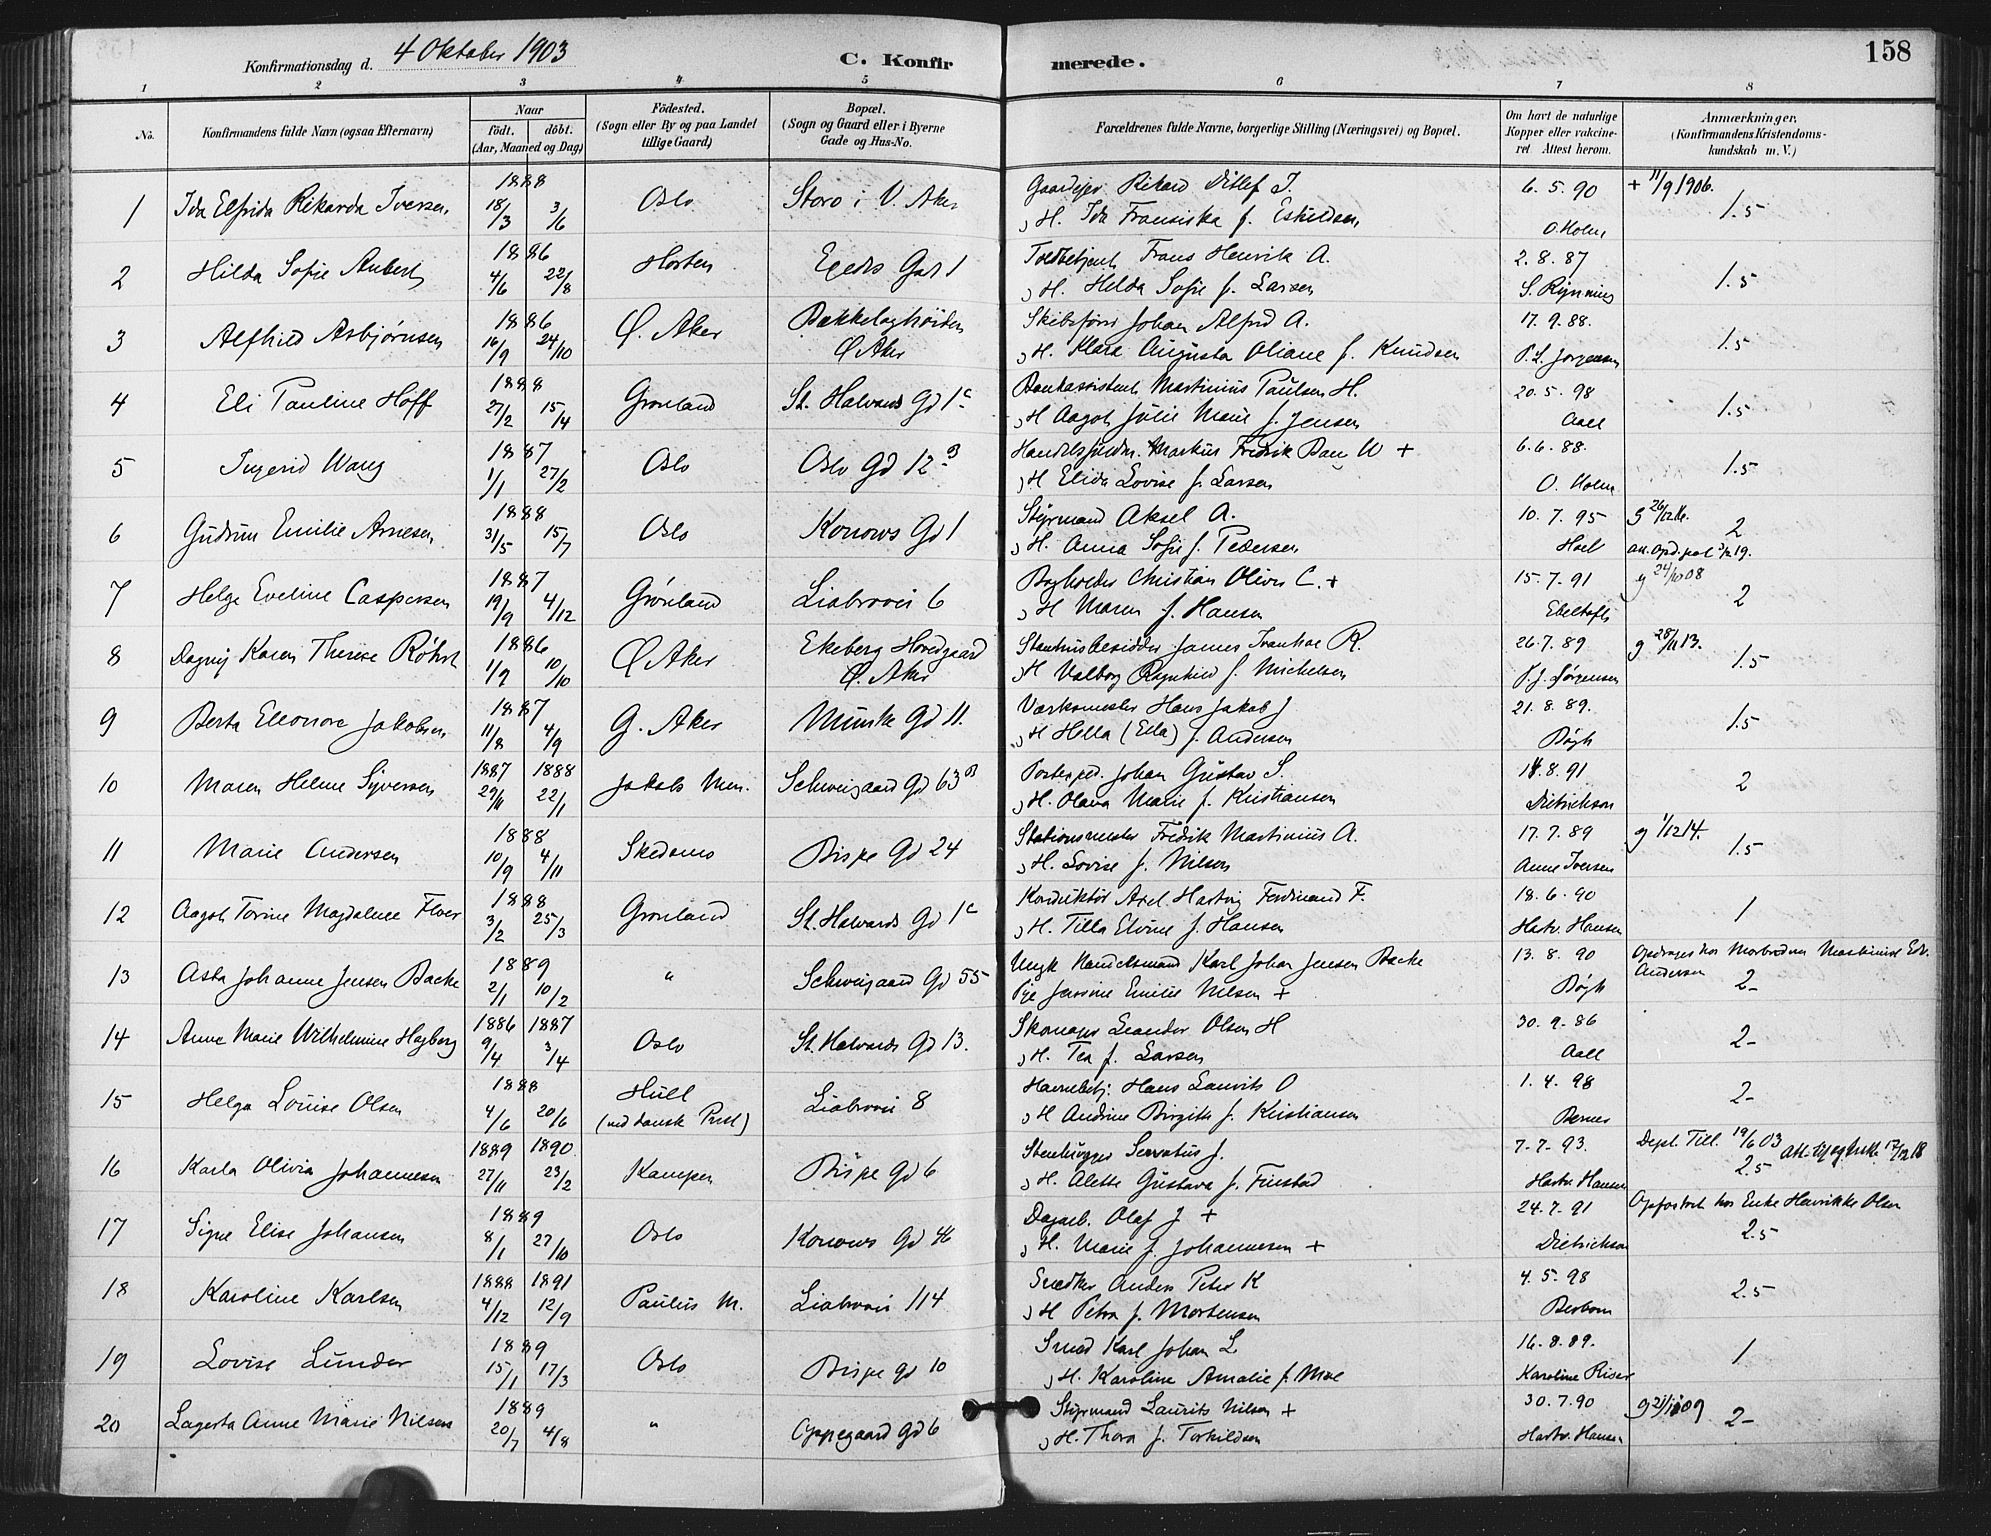 Konfirmationsdag d. 4 Oktober 1903 C. Konfirmerede. 158
1 2 3 4 5 6 7 8
No. Konfirmandens fulde Navn (ogsaa Efternavn) Naar födt. döbt. (Aar, Maaned og Dag) Födested. (Sogn eller By og paa Landet tillige Gaard) Bopæl. (Sogn og Gaard eller i Byerne Gade og Hus-No. Forældrenes fulde Navne, borgerlige Stilling (Næringsvei) og Bopæl. Om havt de naturlige Kopper eller vakcineret Attest herom. Anmærkninger, (Konfirmandens Kristendomskundskab m. V.)
1 Ida Elfrida Rikarda Iversen 1888 18/3 3/6 Oslo Storo i V. Aker Gaardejer Rikard Ditlef I. 6. 5. 90 + 11/9 1906. 1.5
H. Ida Fransiska f. Eskildsen O. Holm
2 Hilda Sofie Aubert 1886 4/6 22/8 Horten Egedes Gad 1 Toldbetjent Frans Henrik A. 2. 8. 87 1.5
H. Helda Sofie f. Larsen S. Rynning
3 Alfhild Asbjørnsen 1886 16/9 24/10 Ø. Aker Bækkelagshøiden Ø Aker Skibsfører Johan Alfred A. 17. 9. 88. 1.5
H. Klara Augusta Oliane f. Knudsen P. L. Jørgensen
4 Eli Pauline Hoff 1888 27/2 15/4 Grønland St. Halvards Gd 1c Bankassistent Martinius Paulsen H. 20. 5. 98 1.5
H Aagot Julie Marie f. Jensen Aall
5 Ingerid Wang 1887 1/1 27/2 Oslo Oslo Gd 12 B Markus Fredrik W + 6. 6. 88. 1.5
H Elida Lovise f. Larsen O. Holm
6 Gudrun Emilie Arnesen 1888 31/5 15/7 Oslo Konows Gd 1 Styrmand Aksel A. 10. 7. 95 2
H. Anna Sofie f. Pedersen Hoel
7 Helga Eveline Caspersen 1887 19/9 4/12 Grønland Liabroveien 6 Bogholder Christian Oliver C. + 15. 7. 91 g 24/10 08 2
H Maren f. Hansen Ebeltoft
8 Dagny Karen Therese Röhrt 1886 1/9 10/10 Ø Aker Ekeberg Hovedgaard Ø. Aker James Ivanhoe R. 26. 7. 89 g 28/11 13. 1.5
H Valborg Ragnhild f. Michelsen P. J. Jørgensen
9 Berta Eleonore Jakobsen 1887 11/8 4/9 G. Aker Munke Gd 11. Værksmester Hans Jakob J 21. 8. 89. 1.5
H Hella (Ella) f. Andersen Bøgh
10 Maren Helene Syversen 1887 29/11 1888 22/1 Jakobs Men. Schweigaard Gd 63 B Johan Gustav S. 14. 8. 91 2
H. Olava Marie f. Kristiansen Dietrichson
11 Marie Andersen 1888 10/9 4/11 Skedsmo Bispe Gd 24 Stationsmester Fredrik Martinius A. 17. 7. 89 g 1/12 14. 1.5
H. Lovise f. Nilsen Anne Iversen
12 Aagot Torine Magdalene Floer 1888 3/2 25/3 Grønland St. Halvards Gd 1c Konduktør Axel Hartvig Ferdinand F. 18. 6. 90 1
H. Tilla Elvine f. Hansen Hartv. Hansen
13 Asta Johanne Jensen Backe 1889 2/1 10/2 " Schweigaard Gd 55 Ungk Handelsmand Karl Johan Jensen Backe 13. 8. 90 Opdrages hos Morbroderen Martinius Edv. Andersen 2-
Pige Jensine Emilie Nilsen + Bøgh
14 Anne Marie Wilhelmine Hagberg 1886 9/4 1887 3/4 Oslo St. Halvards Gd 13. Skomager Leander Olsen H 30. 9. 86 2-
H. Tea f. Larsen Aall
15 Helga Louise Olsen 1888 4/6 20/6 Hull (ved dansk Prest) Liabroveien 8 Havnebetj. Hans Laurits O 1. 4. 98 2-
H Andrine Birgitte f. Kristiansen Berner
16 Karla Olivia Johannesen 1889 27/11 1890 23/2 Kampen Bispe Gd 6 Stenhugger Servatius J. 7. 7. 93. Dept. Till. 19/6 03 2.5
H. Alette Gustava f. Finstad Hartv. Hansen
17 Signe Elise Johansen 1889 8/1 27/10 Oslo Konows Gd 46 Dagarb. Olaf J + 24. 7. 91 Opfostret hos Enke Henrikke Olsen 2.5
H. Marie f. Johannesen + Dietrichson
18 Karoline Karlsen 1888 4/12 1891 12/9 Paulus M. Liabroveien 114 Snedker Anders Peter K 4. 5. 98 2.5
H Petra f. Mortensen Berbom
19 Lovise Lunder 1889 15/1 17/3 Oslo Bispe Gd 10 Smed Karl Johan L 16. 8. 89. 1
H. Karoline Amalie f. Moe Karoline Riser
20 Lagerta Anne Marie Nilsen 1889 20/7 4/8 " Oppegaard Gd 6 Styrmand Laurits Nilsen + 30. 7. 90 2-
H. Thora f. Torkildsen Hartv. Hansen